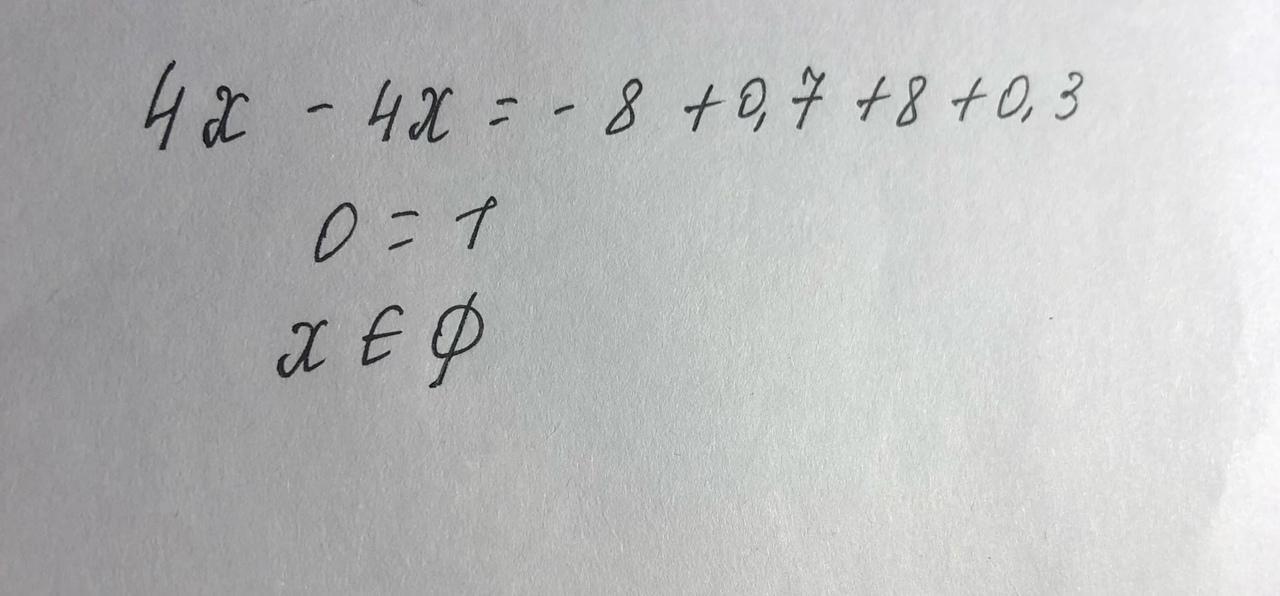 4x - 4x = - 8 + 0,7 + 8 + 0,3
0 = 1
x ∈ ∅